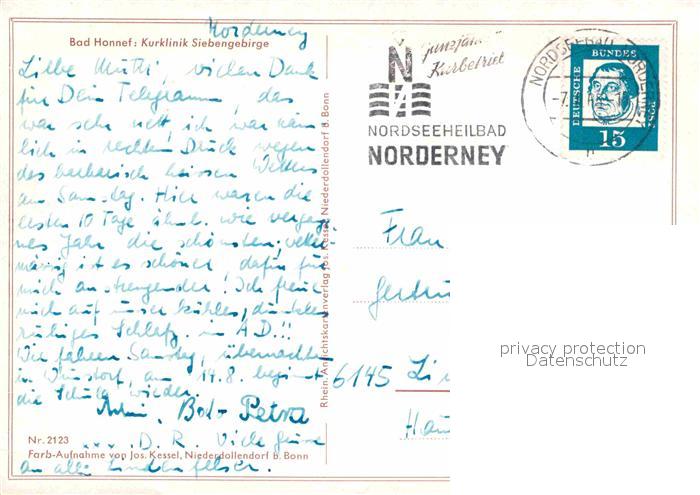 Norderney
Bad Honnef: Kurklinik Siebengebirge
Liebe Mutti, vielen Dank
für Dein Telegramm, das
war sehr nett, ich war näm
lich in rechtem Druck wegen
des barbarisch heissen Wetters
am Samstag. Hier waren die
ersten 10 Tage ähnl. wie vergange
nes Jahr die schönsten,
mässig ist es schöner, dafür für
mich anstrengender! Ich freue
mich auf unser kühles, dunkles
ruhiges Schlafz. in A.D.!!!
Wir fahren Samstag, übernachten
in Wunstorf, am 14.8. beginnt
die Schule wieder.
Bodo Petra
D. R. Viele Grüsse
an alle Lindenfelser.
Nr. 2123
Farb-Aufnahme von Jos. Kessel, Niederdollendorf b. Bonn
Rhein. Ansichtskartenverlag Jos. Kessel Niederdollendorf b. Bonn
ganzjähr
Kurbetrieb
N
NORDSEEHEILBAD
NORDERNEY
NORDSEEBAD NORDERNEY
DEUTSCHE BUNDESPOST
15
Frau
Gertru
6145 Li
Hau
privacy protection
Datenschutz